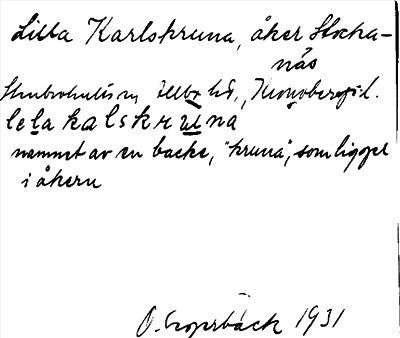 Lilla Karlskruna, åker Stocka-
näs
Stenbrohults sn, Allbo hd., Kronobergs l.
lela kalskruna
namnet av en backe, "kruna", som ligger
i åkern
1931